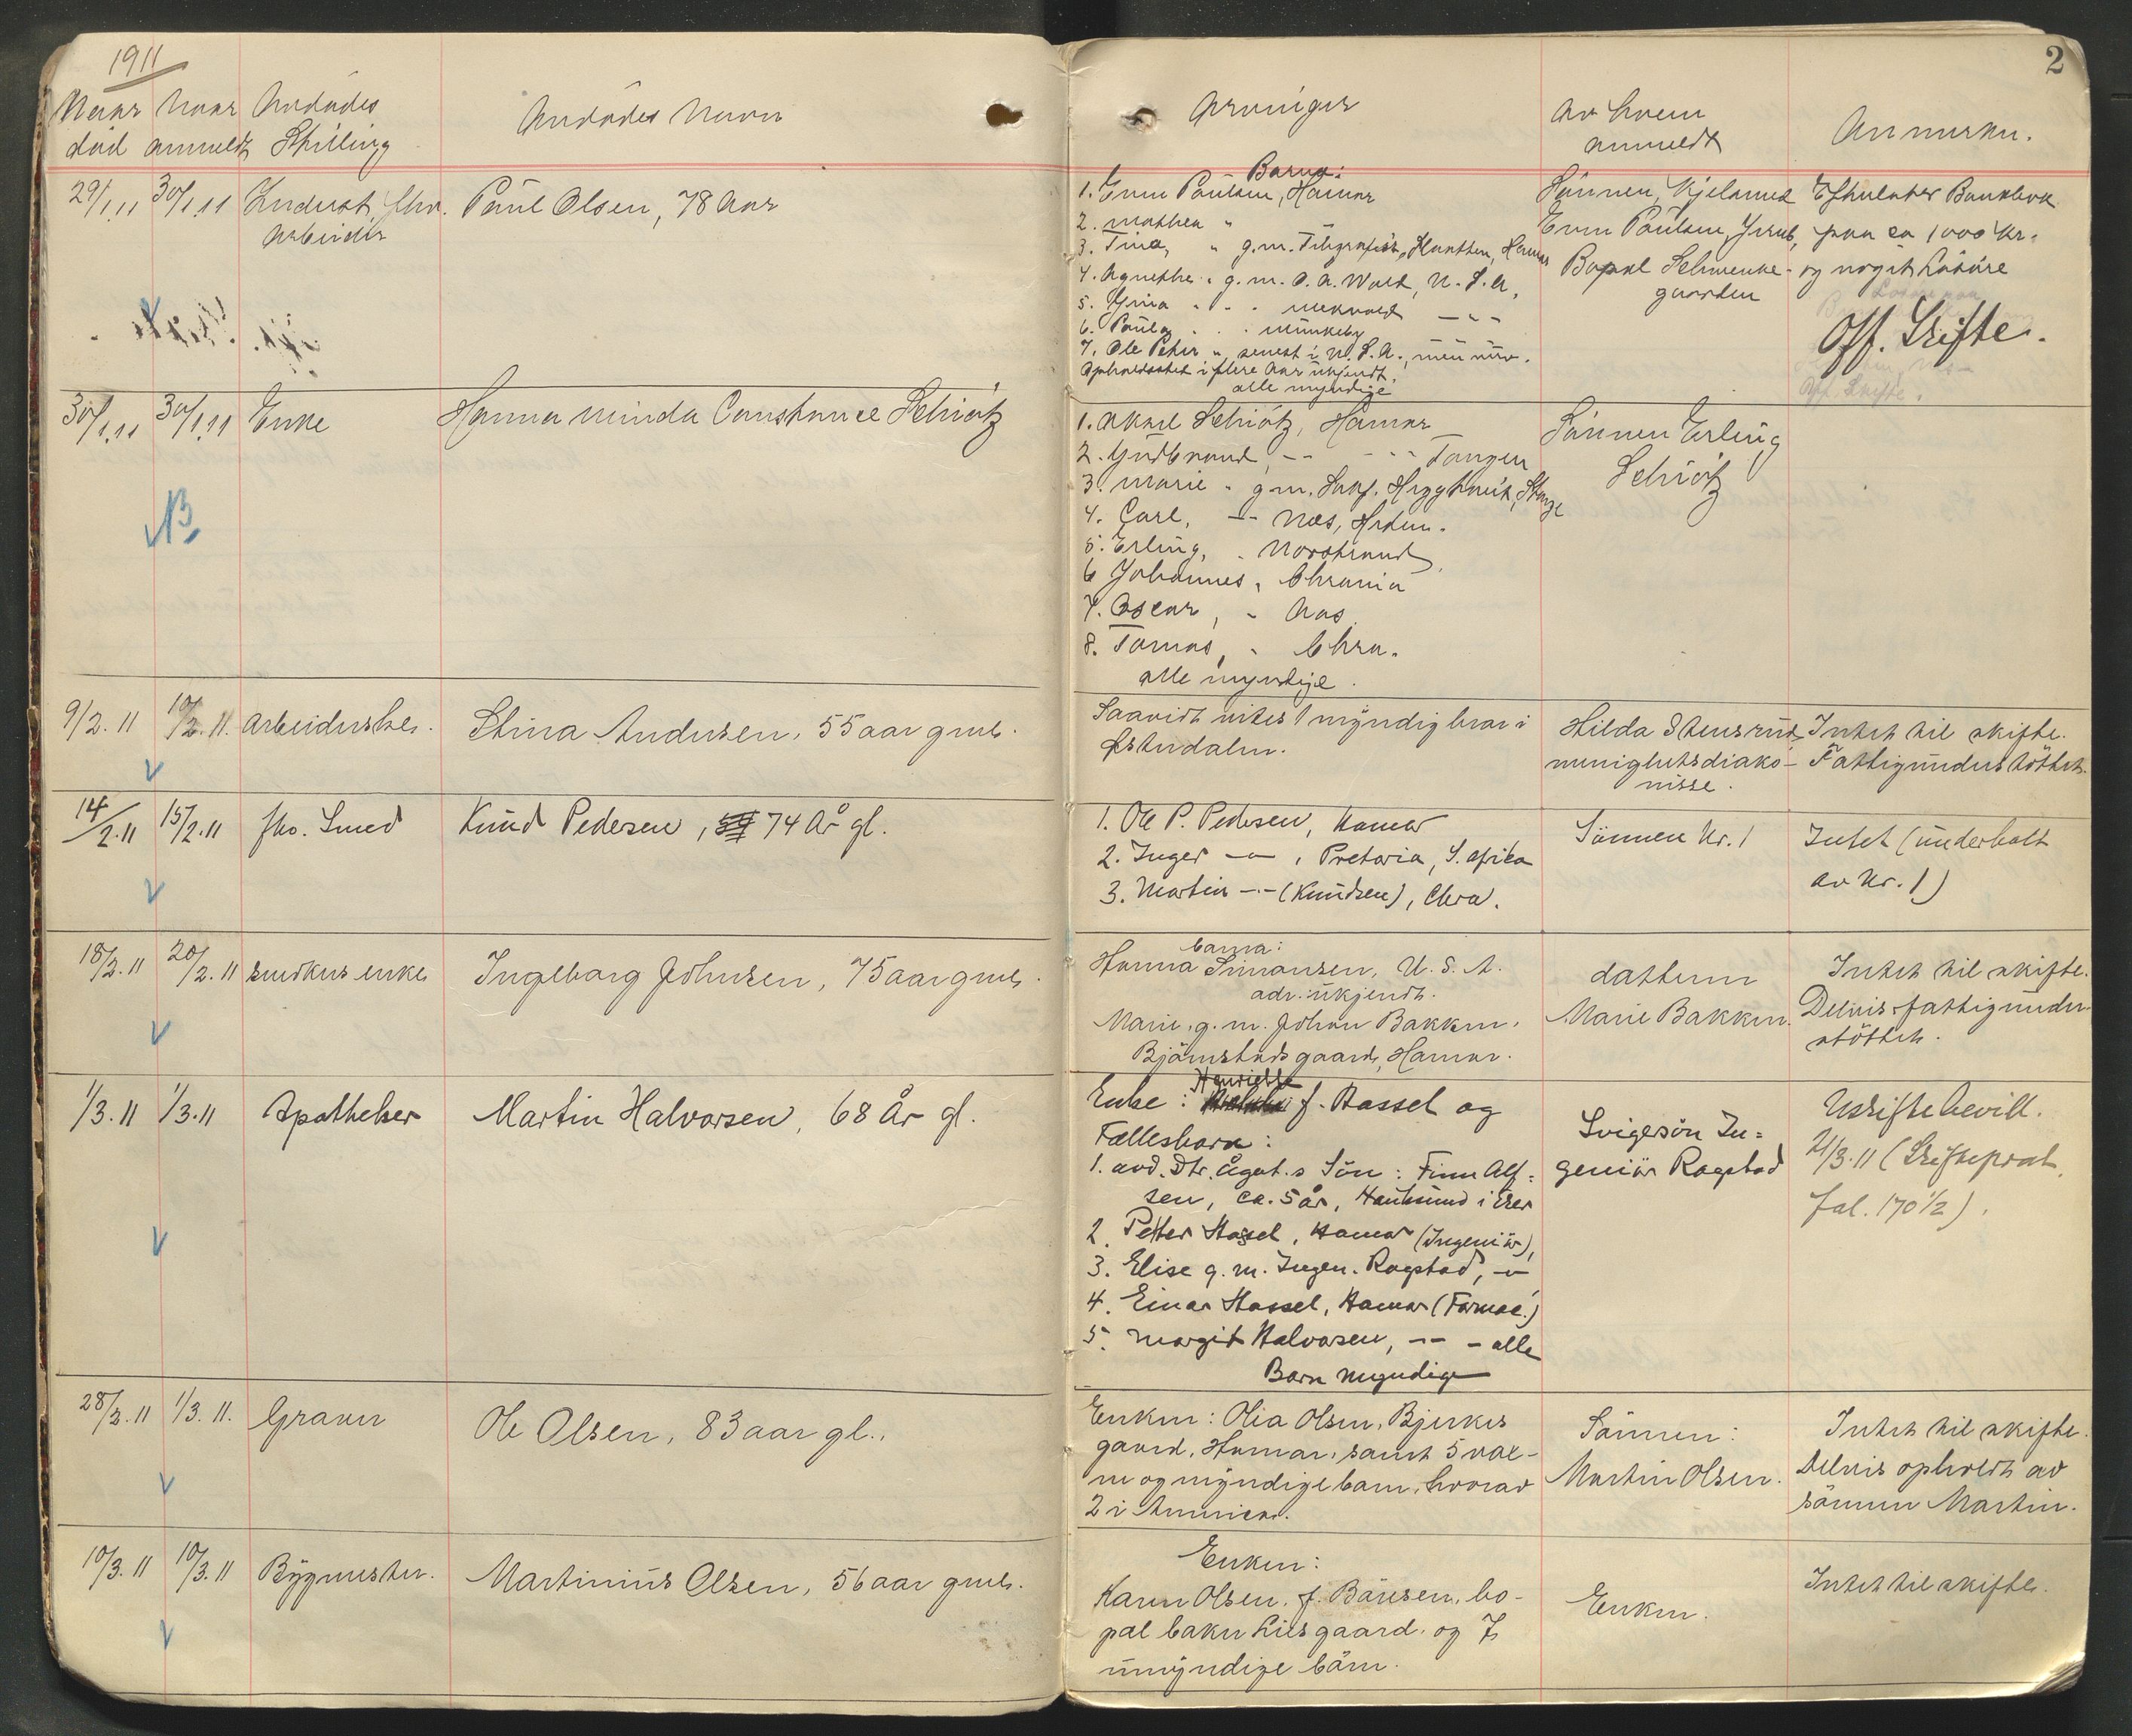 1911
Naar Naar Avdødes Avdødes Navn
død anmeldt Stilling
29/1.11 30/1.11 Indust. fhv. Paul Olsen, 78 Aar
Arbeider
30/1.11 30/1.11 Enke Hanna Minda Constance Schiøtz
NB
9/2.11 10/2.11. arbeiderske. Stina Andersen, 55 aar gml.
14/2.11 15/2.11 fhv. Smed Knud Pedersen, 74 År gl.
18/2.11 20/2.11 snedkerenke Ingeborg Johnsen, 75 aar gml.
1/3.11 1/3.11 Apotheker Martin Halvorsen, 68 År gl.
28/2.11 1/3.11. Graver Ole Olsen, 83 aar gl.
10/3.11 10/3.11 Bygmester. Martinius Olsen, 56 aar gml.
2
Arvinger Av hvem Anmerkn.
anmeldt
Barn:
1. Even Paulsen, Hamar
2. Mathea "
3. Tina, " g.m. Telegrafist Hamar
4. Agnethe " g.m. O. A. U.S.A.
5. " " " -"-
6. Paula " "
7. Ole Peter ", senest i U.S.A., men nuv.
Opholdssted i flere Aar ukjendt.
alle myndige
Sønnen,
Even Paulsen,
Bopæl Schwenke-
gaarden
Efterlater Bankbok
paa ca 1000 Kr.
og noget Løsøre
Off. Skifte.
1. Schiøtz, Hamar
2. Gudbrand, -"- Tangen
3. Marie " g.m. Stange
4. Carl, -"- Næs, Hedm.
5. Erling, " Norstrand
6 Johannes, " Chrania
7. Oscar, " Aas
8. Tomas, " Chra.
alle myndige.
Sønnen Erling
Schiøtz
Saavidt vites 1 myndig bror i
Østerdalen.
Hilda Stensrud,
menighetsdiako-
nisse.
Intet til skifte.
Fattigunderstøttet.
1. Ole P. Pedersen, Hamar
2. Inger -"-, Pretoria, S. Afrika
3. Martin -"- (Knudsen), Chra.
Sønnen Nr. 1
Intet (underholdt
av Nr. 1)
barn:
Hanna Simonsen, U.S.A.
adr. ukjendt.
Marie, g.m. Johan Bakken,
Bjørnstadgaard, Hamar.
datteren
Marie Bakken.
Intet til skifte.
Delvis fattigunder-
støttet.
Henriette
Enke: f. Hassel og
Fællesbarn:
1. avd. Dtr. Ågot.s Søn: Finn Alf-
sen, ca. 5 år,
2. Petter Hassel, Hamar (Ingeniør),
3. Elise g.m. Ingen. Rogstad, -"-
4. Einar Hassel, Hamar (Farmac.)
5. Margit Halvorsen, -"- - alle
Børn myndige
Svigersøn In=
geniør Rogstad
Uskiftebevill.
2/3.11 (Skifteprot.
fol. 170 1/2).
Enken: Olia Olsen, Bjerkes
gaard, Hamar, samt 5 vox-
ne og myndige barn, hvorav
2 i Amerika.
Sønnen:
Martin Olsen.
Intet til skifte.
Delvis opholdt av
sønnen Martin.
Enken:
Karen Olsen, f. Bansen, bo-
pæl gaard. og 7
umyndige børn.
Enken.
Intet til skifte.